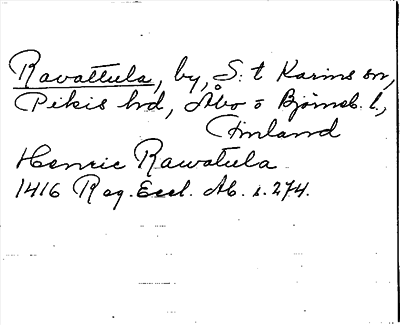 Ravattula, by, S:t Karins sn,
Pikis hrd, Åbo o Björneb. l.,
Finland
Henric Rawatula
1416 Reg. Eccl. Ab. s. 274.